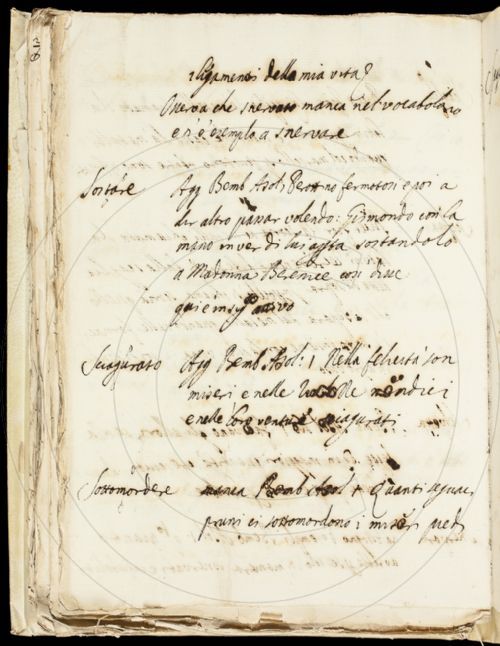 i ligamenti della mia vita?
Osserva che snervato manca nel vocabolario
e n'è esempio a snervare
Sostare Agg Bemb Asol: Perottino fermatosi e poi a
dir altro passar volendo: Gismondo con la
mano in ver di lui sostandolo
a Madonna Berenice così disse
qui è in sig. attivo
Sciagurato Agg Bemb Asol: 1 Nella felicità son
miseri e nelle mendici
e nelle loro venture sciagurati
Sottomordere manca Bemb Asol 1 Quanti
pruni ci sottomordono i miseri piedi